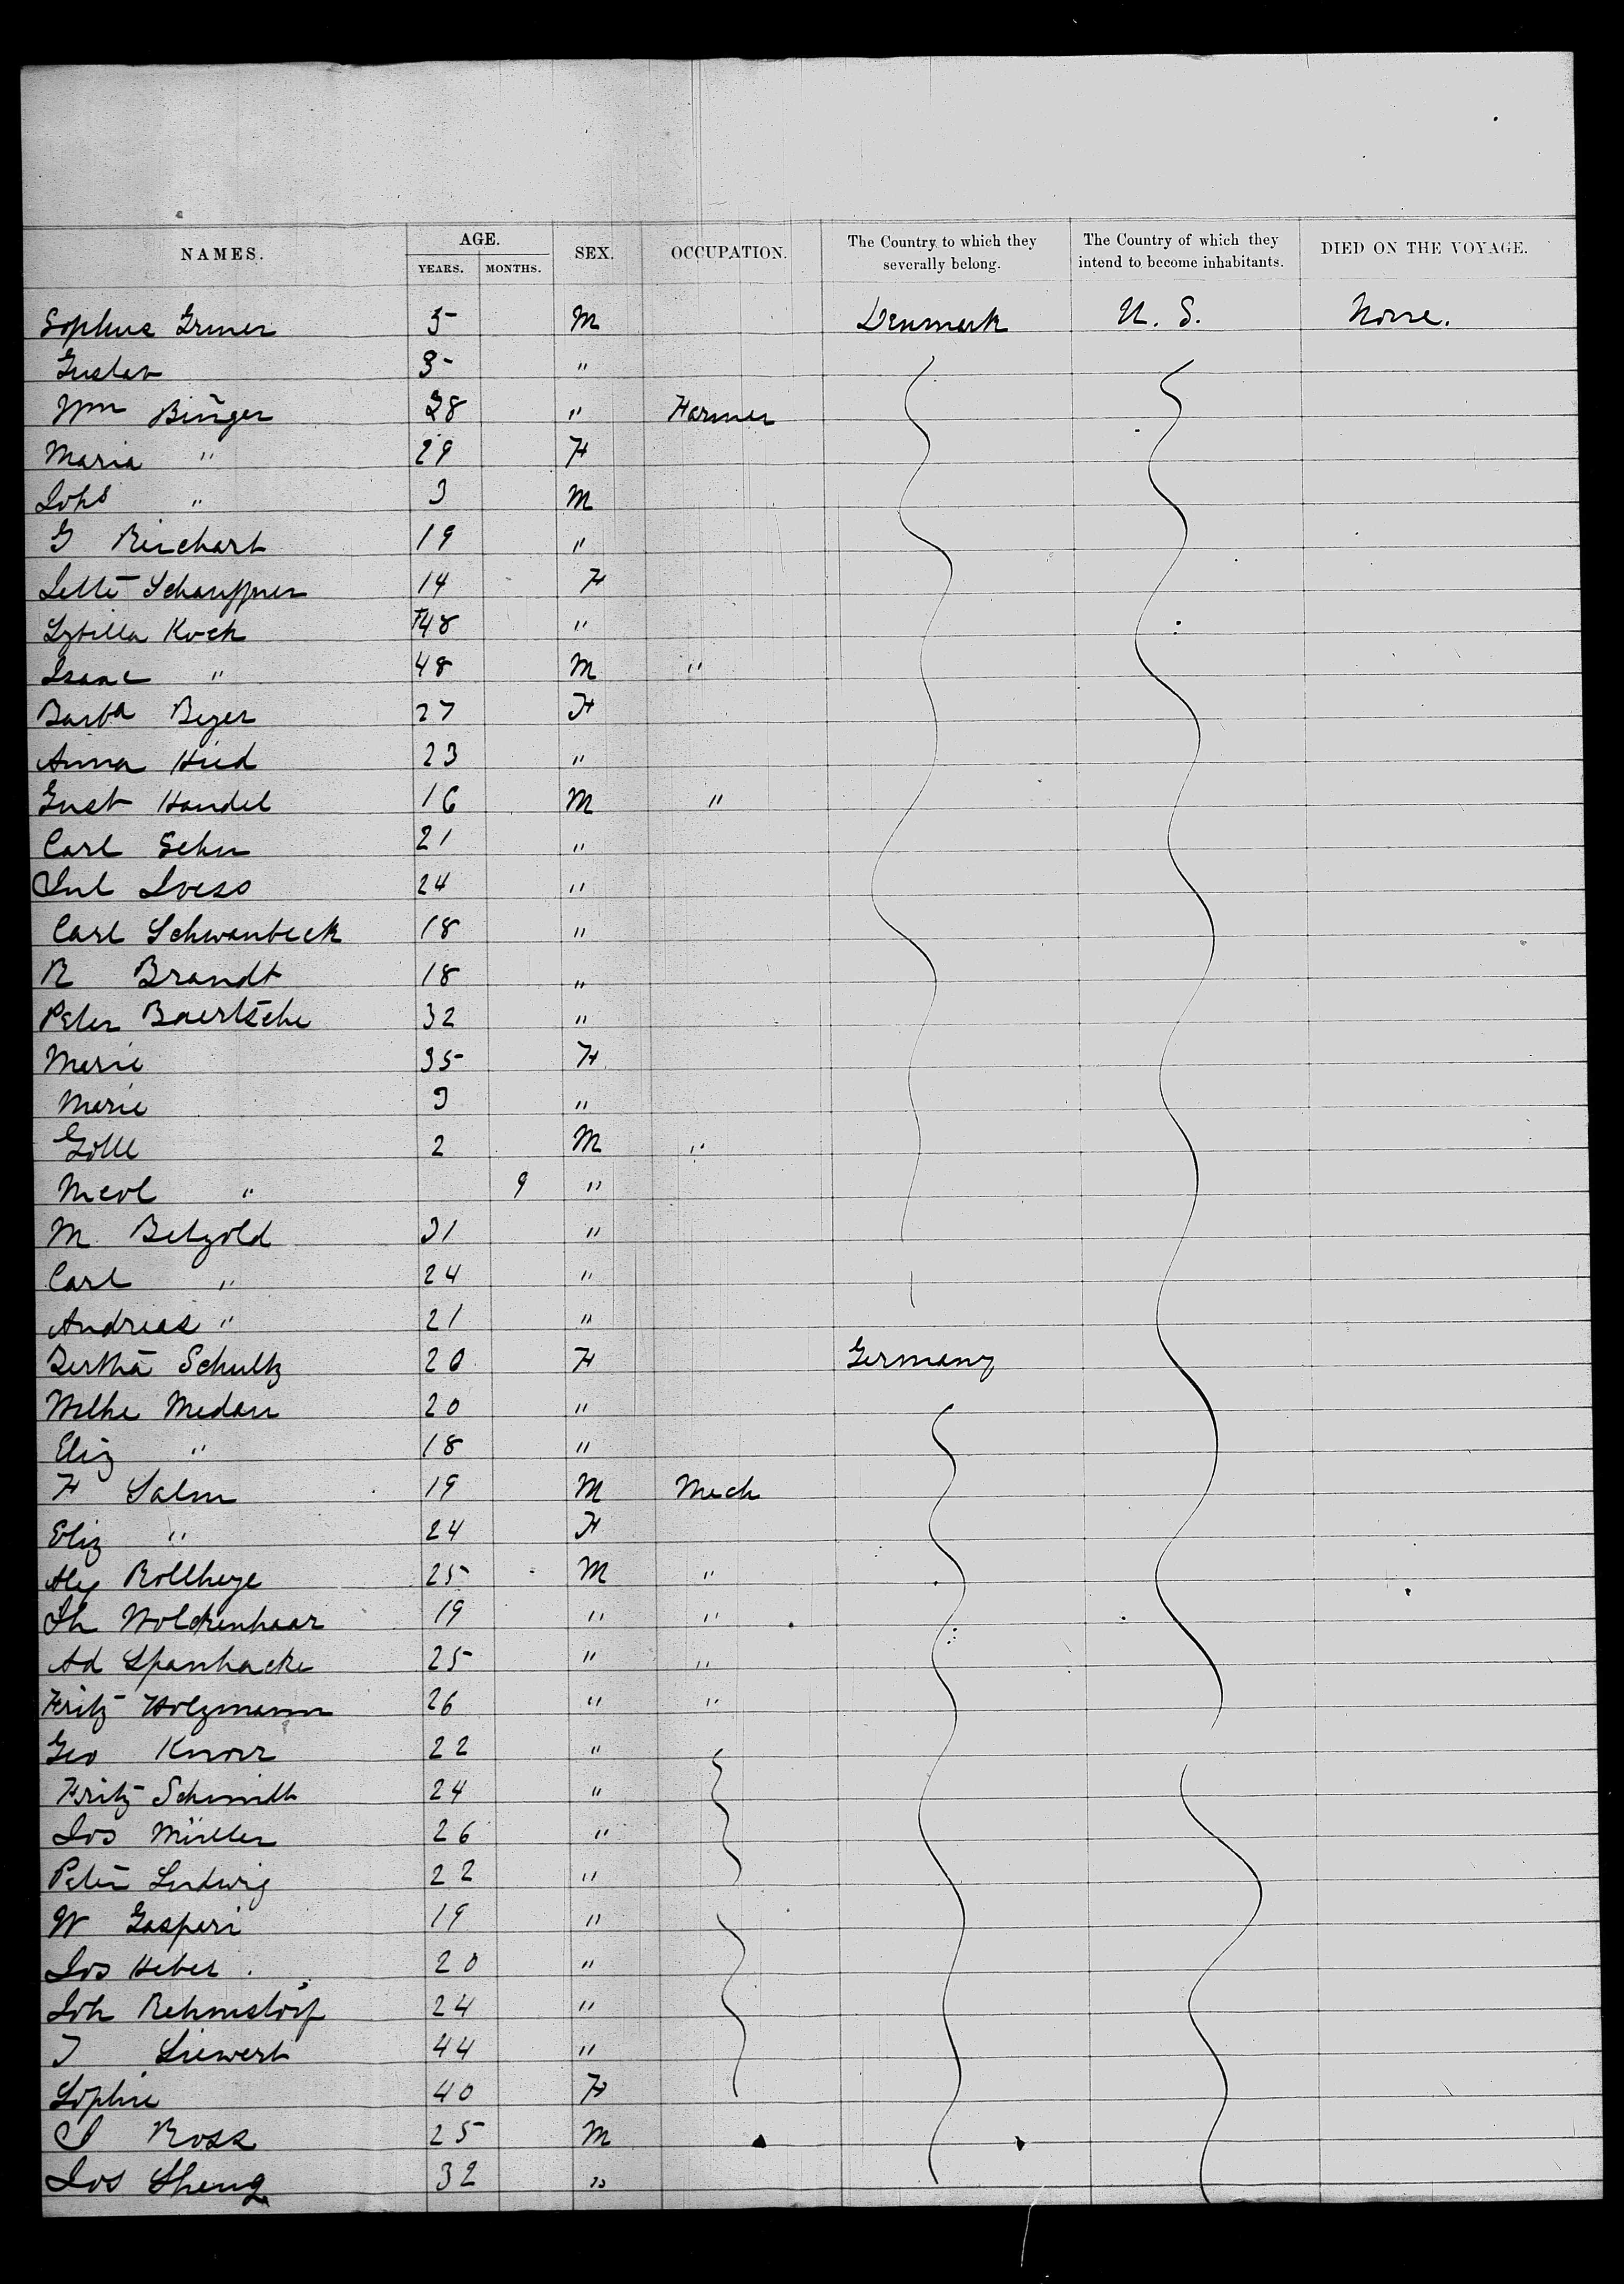 NAMES. AGE. SEX. OCCUPATION. The Country to which they severally belong. The Country of which they intend to become inhabitants. DIED ON THE VOYAGE.
YEARS. MONTHS.
Sophus Grmer 5 M Denmark U. S. None.
Gustav 3 "
Wm Binger 28 " Farmer
Maria " 29 F
Johs " 3 M
G Reichart 19 "
Lette Schauffner 14 F
Sybilla Koch 48 "
Isaac " 48 M "
Barba Beyer 27 F
Anna Hied 23 "
Gust Handel 16 M "
Carl Sehn 21 "
Jul 24 "
Carl Schwanbeck 18 "
R Brandt 18 "
Peter Baertsche 32 "
Marie 35 F
Marie 3 "
Gottl 2 M "
Nicol " 9 "
M Betzold 31 "
Carl " 24 "
Andreas " 21 "
Bertha Schultz 20 F Germany
Wilhe Medau 20 "
Eliz " 18 "
F Salm 19 M Mech
Eliz " 24 F
Alex Rollheye 25 M "
Th Wolckenhaar 19 " "
Ad Spanhacke 25 " "
Fritz Holzmann 26 " "
Geo Knorr 22 "
Fritz Schmidt 24 "
Jos Müller 26 "
Peter Ludwig 22 "
W Gasperi 19 "
Jos Heber 20 "
Joh Rehmstorf 24 "
J Siewert 44 "
Sophie 40 F
J Ross 25 M
Jos Sheng 32 "